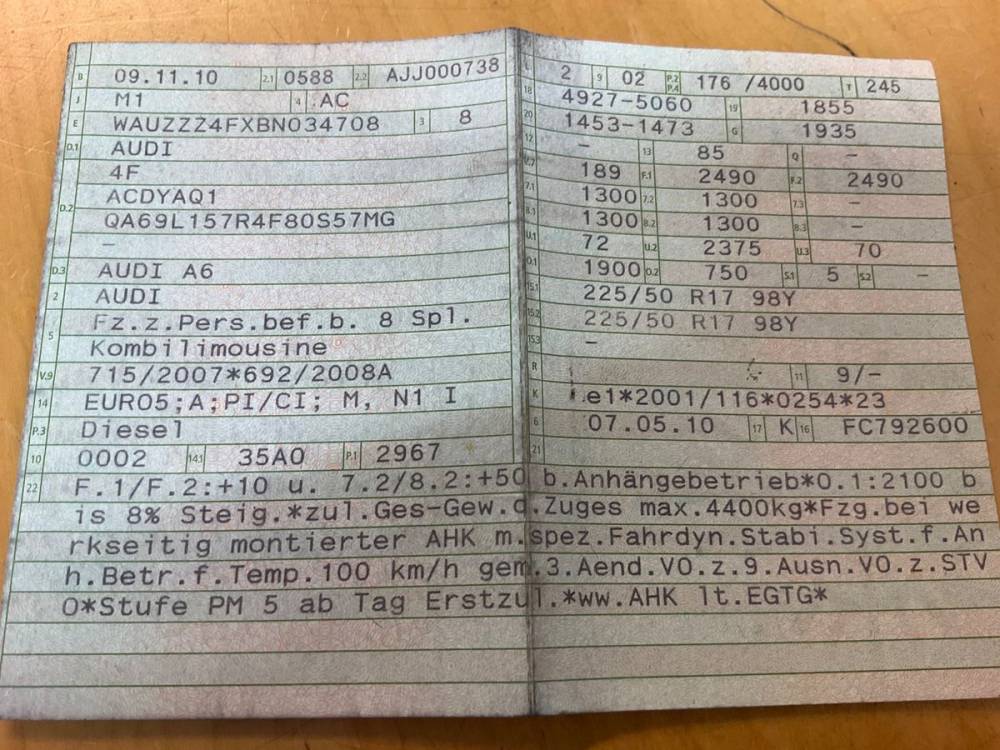 B 09.11.10 2.1 0588 2.2 AJJ000738
J M1 4 AC
E WAUZZZ4FXBN034708 3 8
D.1 AUDI
4F
D.2 ACDYAQ1
QA69L157R4F80S57MG
–
D.3 AUDI A6
2 AUDI
5 Fz.z.Pers.bef.b. 8 Spl.
Kombilimousine
V.9 715/2007*692/2008A
14 EURO5;A;PI/CI; M, N1 I
P.3 Diesel
10 0002 14.1 35A0 P.1 2967
L 2 9 02 P.2 P.4 176 /4000 T 245
18 4927-5060 19 1855
20 1453-1473 G 1935
12 – 13 85 Q –
V.7 189 F.1 2490 F.2 2490
7.1 1300 7.2 1300 7.3 –
8.1 1300 8.2 1300 8.3 –
U.1 72 U.2 2375 U.3 70
O.1 1900 O.2 750 S.1 5 S.2 –
15.1 225/50 R17 98Y
15.2 225/50 R17 98Y
15.3 –
R 11 9/–
K e1*2001/116*0254*23
6 07.05.10 17 K 16 FC792600
21
22 F.1/F.2:+10 u. 7.2/8.2:+50 b.Anhängebetrieb*0.1:2100 b
is 8% Steig.*zul.Ges-Gew.d.Zuges max.4400kg*Fzg.bei we
rkseitig montierter AHK m.spez.Fahrdyn.Stabi.Syst.f.An
h.Betr.f.Temp.100 km/h gem.3.Aend.VO.z.9.Ausn.VO.z.STV
O*Stufe PM 5 ab Tag Erstzul.*ww.AHK lt.EGTG*